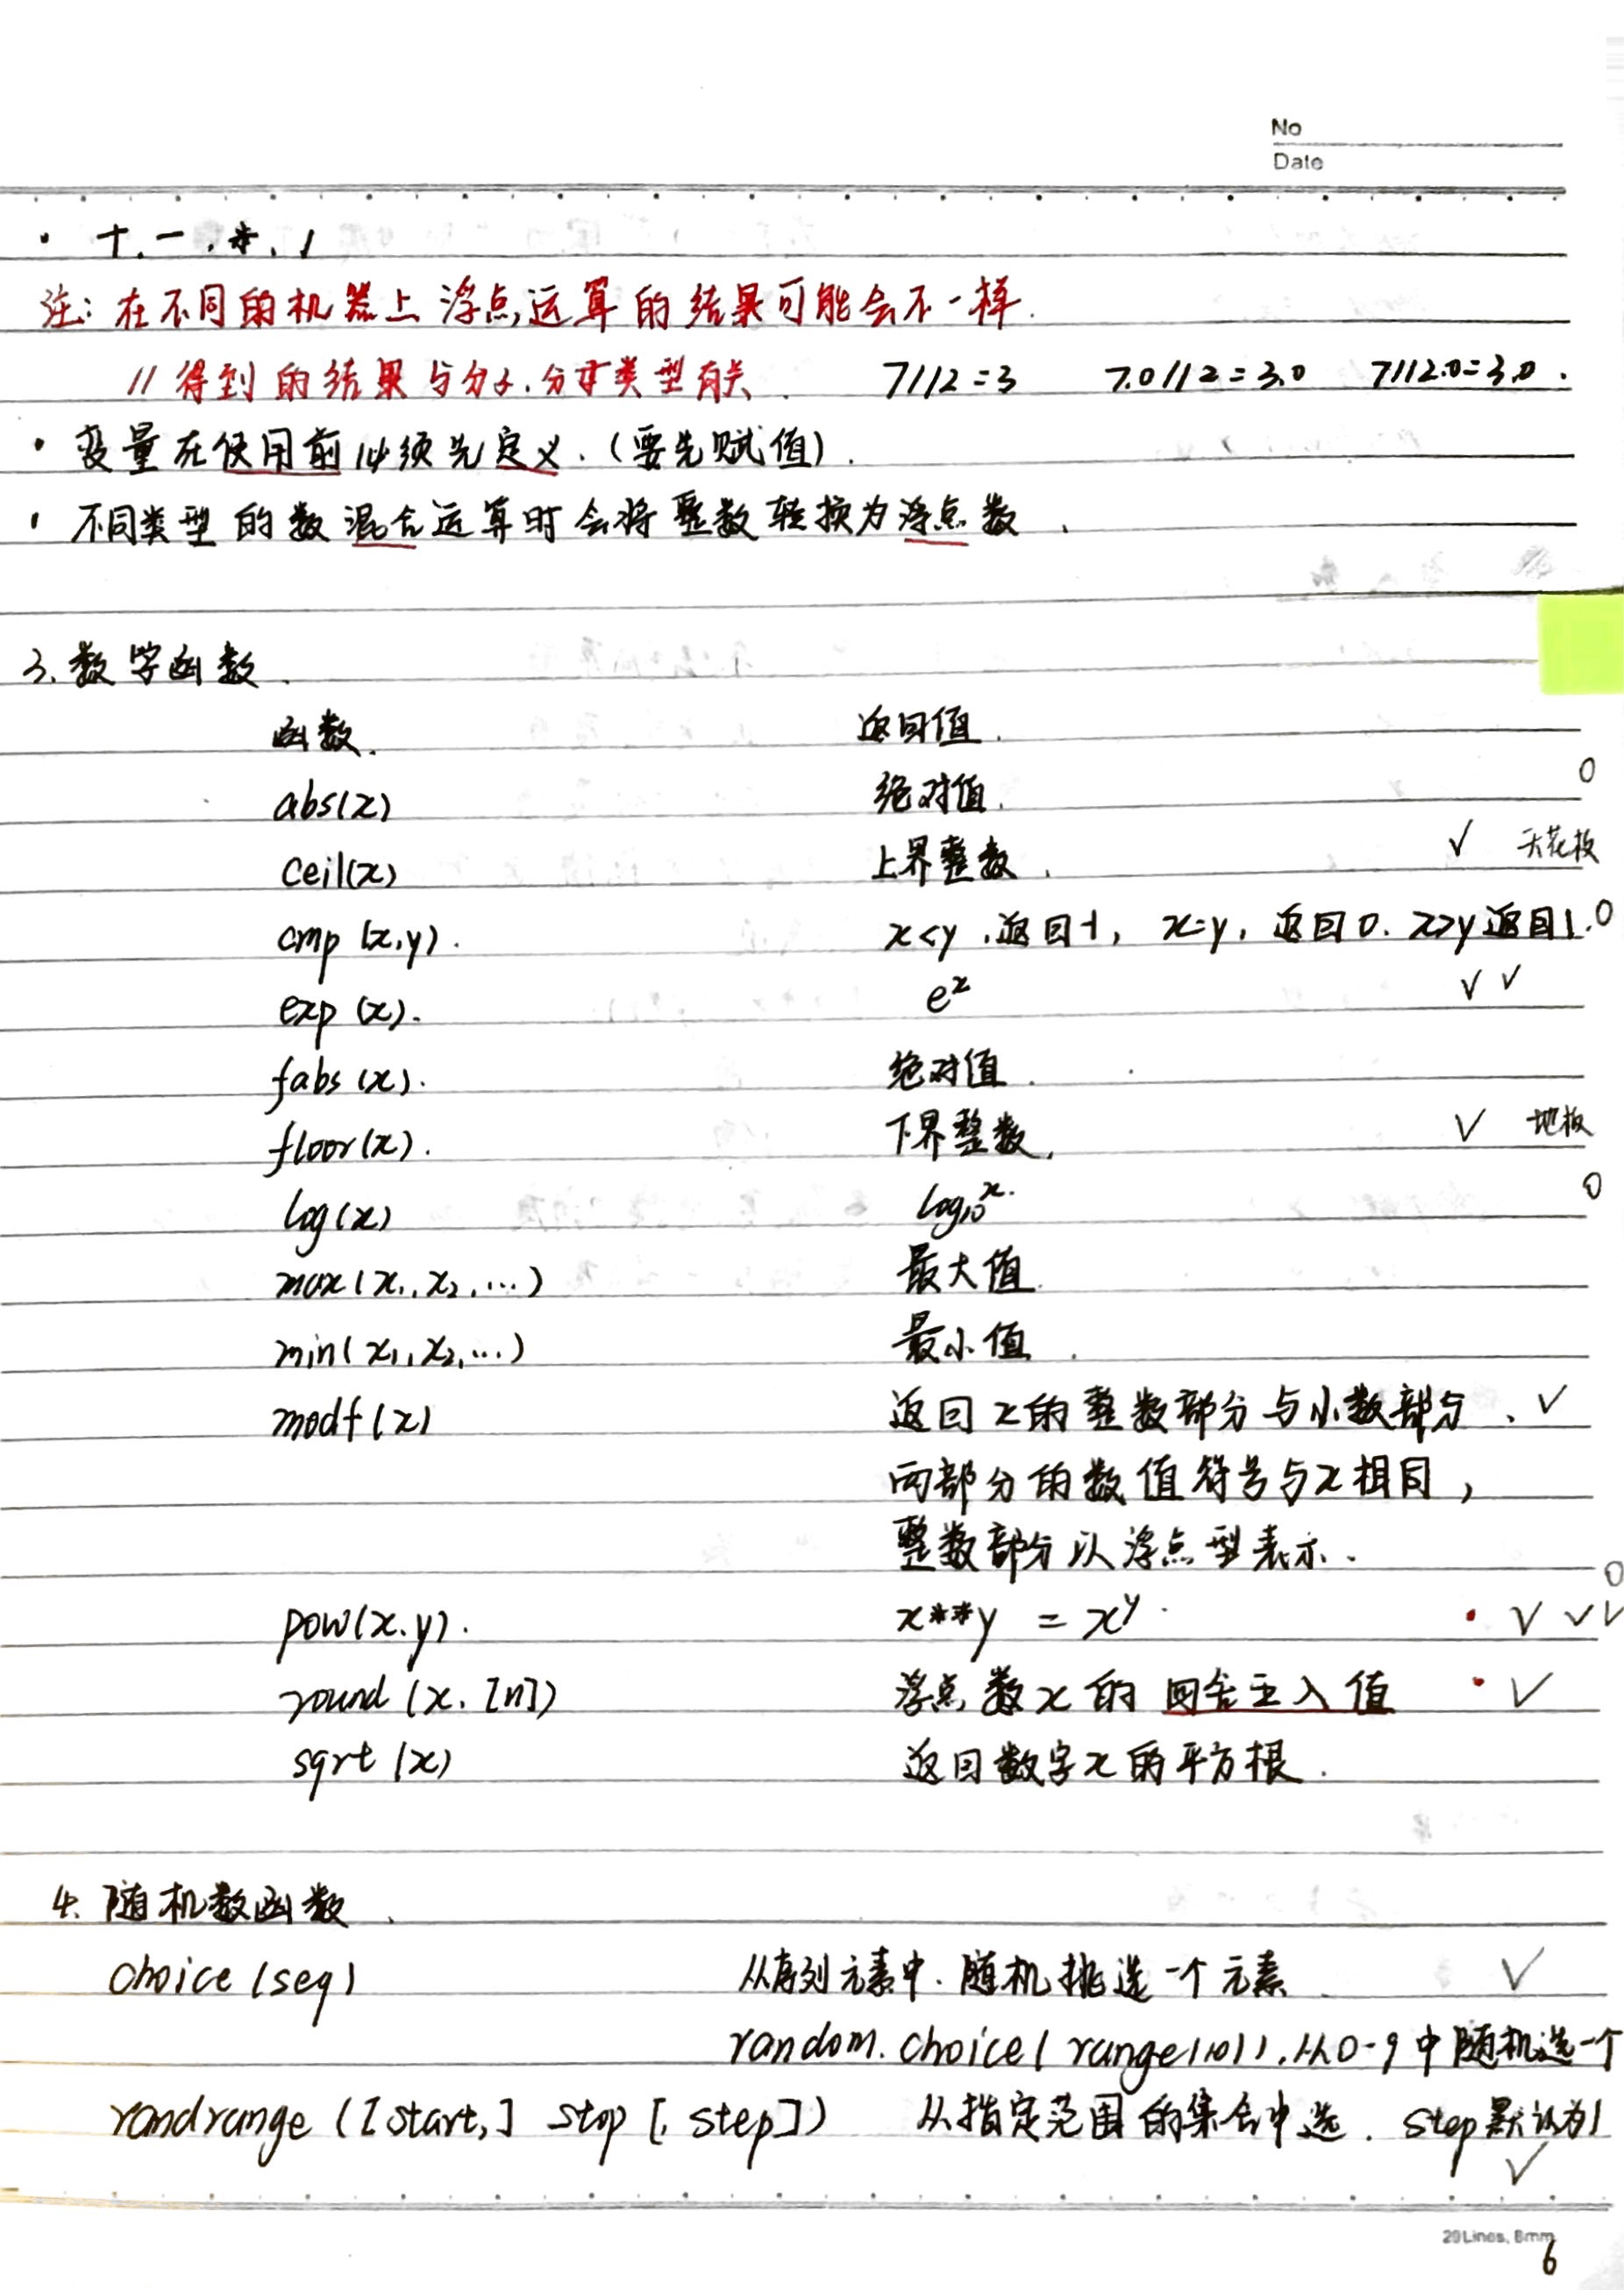 No
Date
· +.-.*./
注: 在不同的机器上 浮点运算的结果可能会不一样.
// 得到的结果与分子.分母类型有关. 7//2=3 7.0//2=3.0 7//2.0=3.0.
· 变量在使用前必须先定义.(要先赋值).
· 不同类型的数混合运算时会将整数转换为浮点数.
3.数学函数.
函数. 返回值.
abs(x) 绝对值. 0
ceil(x) 上界整数. √ 天花板
cmp (x,y). x<y.返回-1, x=y, 返回0. x>y返回1. 0
exp (x). eˣ √ √
fabs (x). 绝对值.
floor(x). 下界整数. √ 地板
log(x) log₁₀ˣ. 0
max(x₁,x₂,...) 最大值.
min(x₁,x₂,...) 最小值.
modf(x) 返回x的整数部分与小数部分. √
两部分的数值符号与x相同,
整数部分以浮点型表示. 0
pow(x.y). x**y = xʸ. · √ √√
round (x. [n]) 浮点数x的四舍五入值 · √
sqrt (x) 返回数字x的平方根.
4. 随机数函数.
choice (seq) 从序列元素中.随机挑选一个元素. √
random.choice( range(10)).从0-9中随机选一个
randrange ([start,] stop [, step]) 从指定范围的集合中选. step默认为1
√
29Lines, 8mm
6